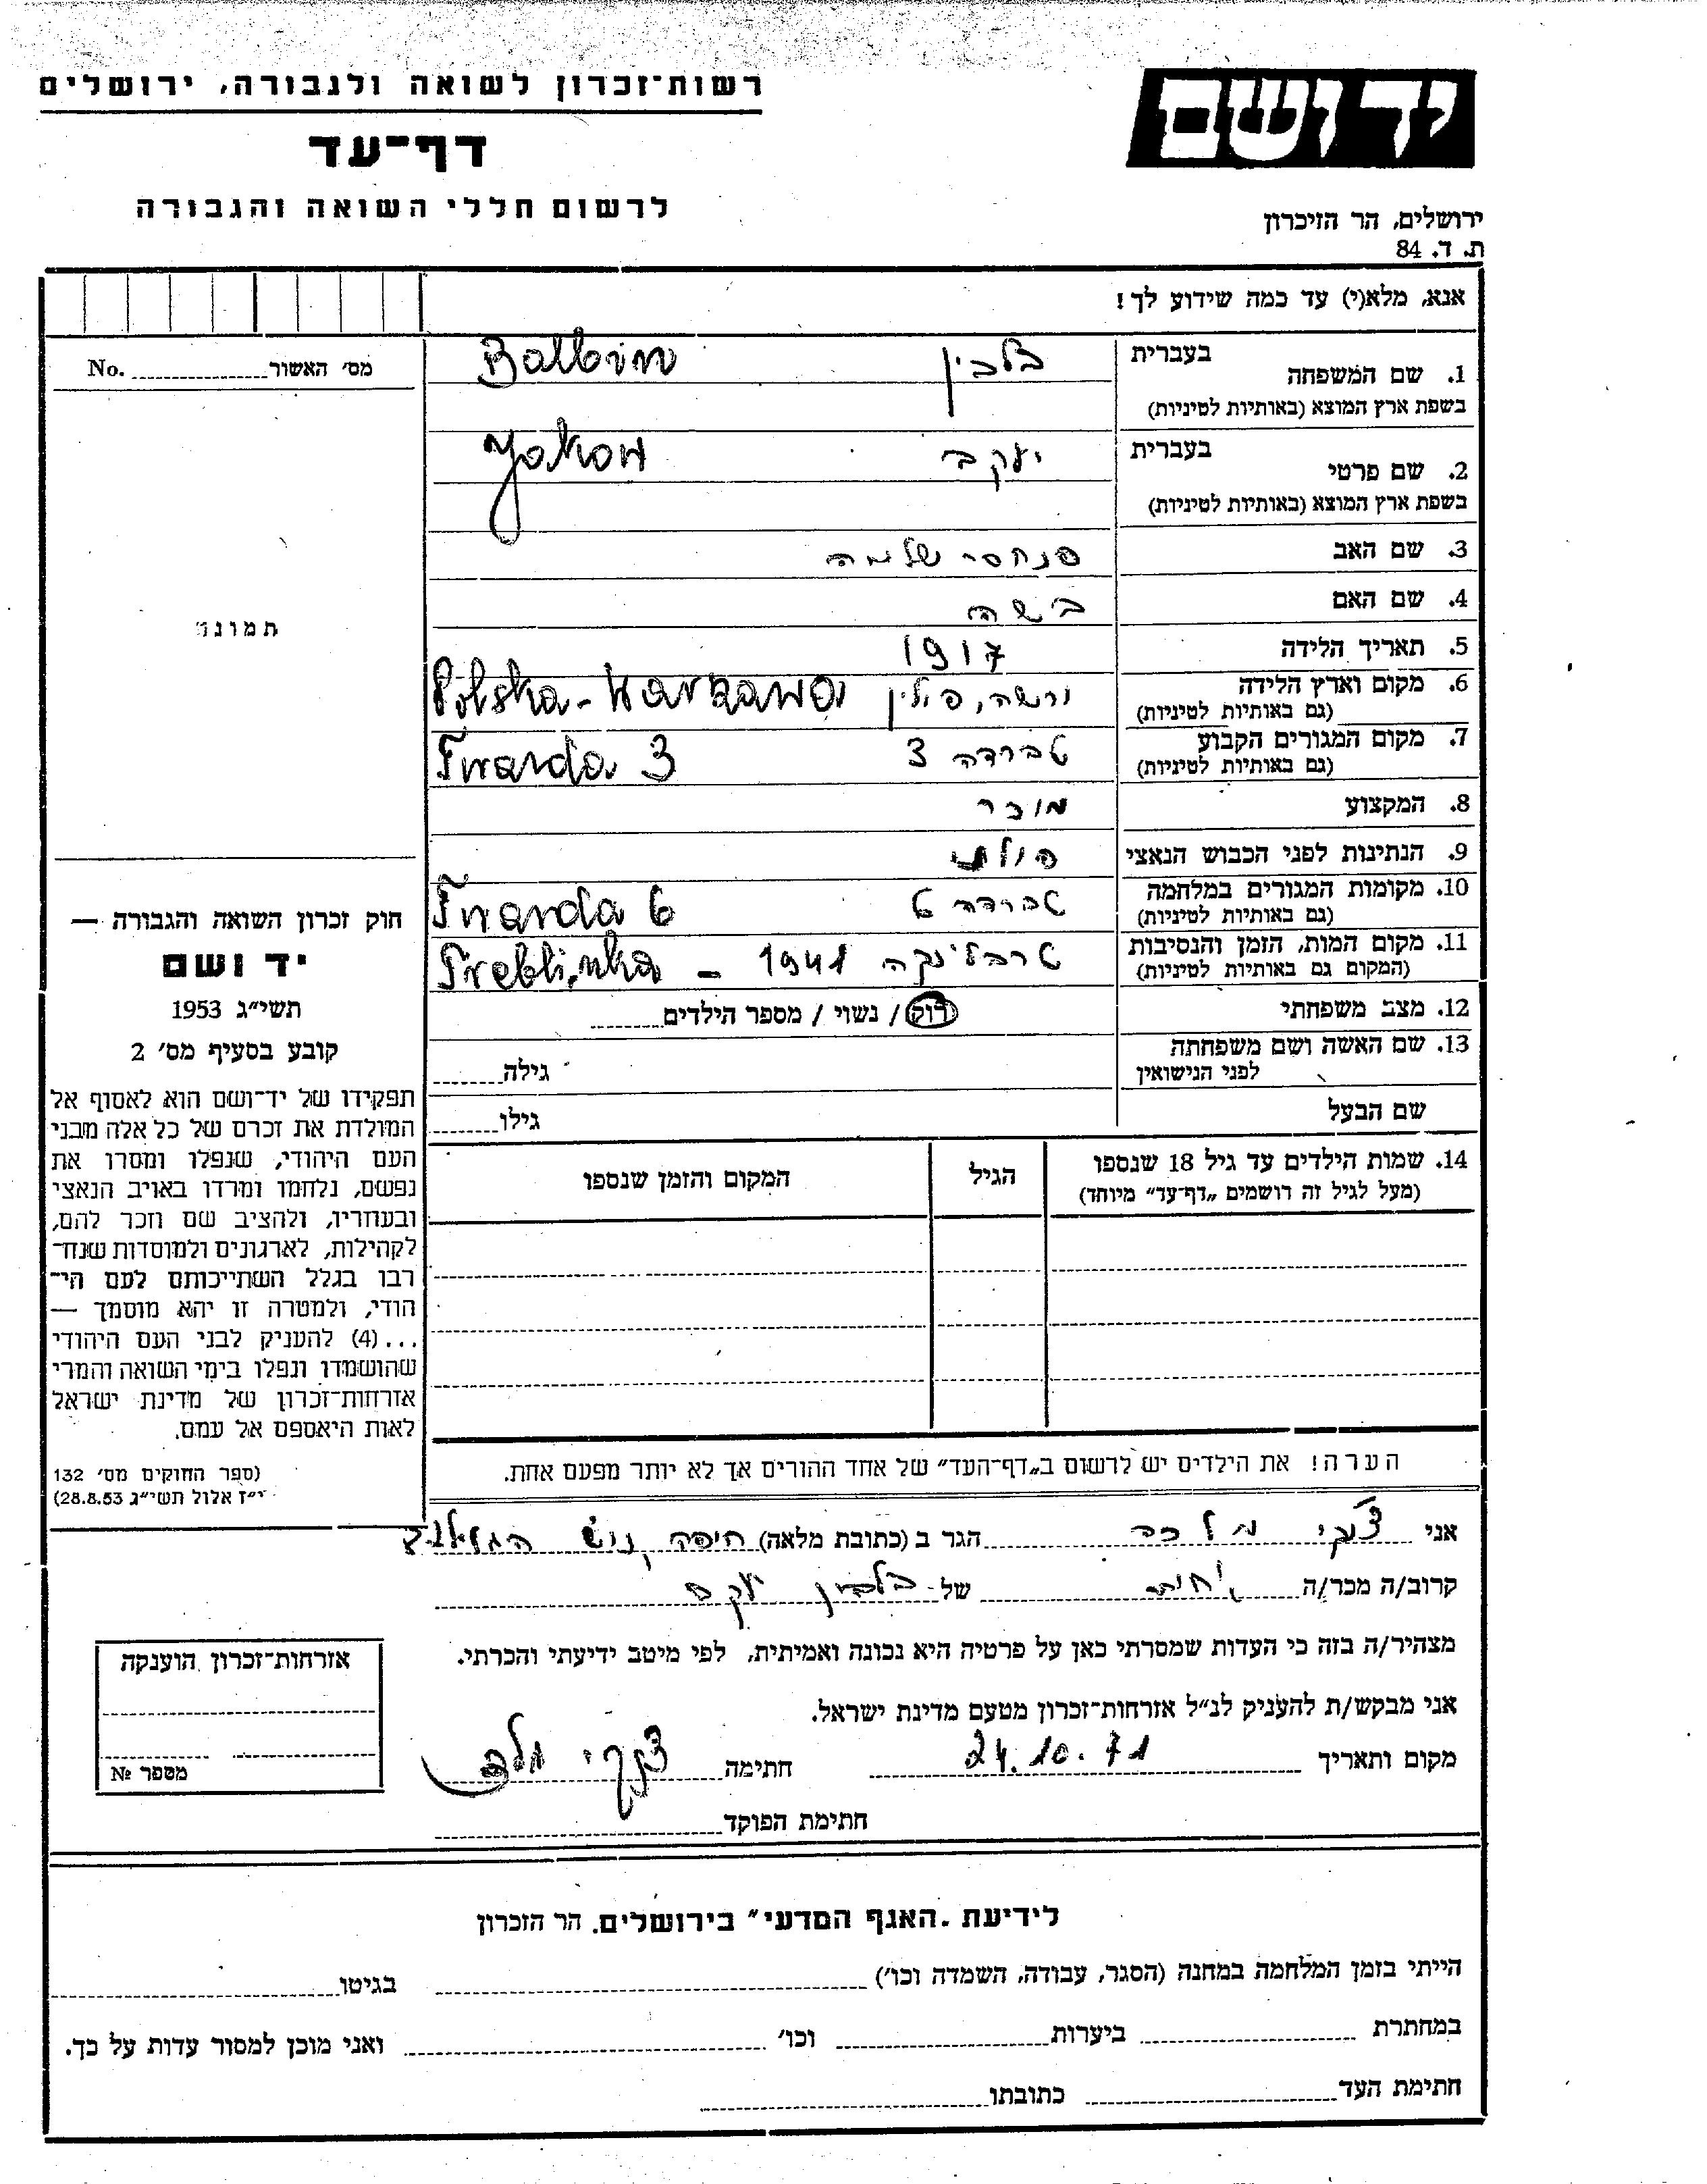 רשות־זכרון לשואה ולגבורה, ירושלים
דף־עד
לרשום חללי השואה והגבורה
יד ושם
ירושלים, הר הזיכרון
ת. ד. 84
אנא, מלא(י) עד כמה שידוע לך!
מס׳ האשור No.
תמונה
1. שם המשפחה בעברית בלבין Balbin
בשפת ארץ המוצא (באותיות לטיניות)
2. שם פרטי בעברית יעקב Jakow
בשפת ארץ המוצא (באותיות לטיניות)
3. שם האב פנחס שלמה
4. שם האם
5. תאריך הלידה 1917
6. מקום וארץ הלידה ורשה, פולין Polska - Warzawa
(גם באותיות לטיניות)
7. מקום המגורים הקבוע טברדה 3 Twarda 3
(גם באותיות לטיניות)
8. המקצוע מוכר
9. הנתינות לפני הכבוש הנאצי
10. מקומות המגורים במלחמה טברדה 6 Twarda 6
(גם באותיות לטיניות)
11. מקום המות, הזמן והנסיבות טרבלינקה 1941 - Treblinka
(המקום גם באותיות לטיניות)
12. מצב משפחתי רוק / נשוי / מספר הילדים
13. שם האשה ושם משפחתה
לפני הנישואין גילה
שם הבעל גילו
14. שמות הילדים עד גיל 18 שנספו הגיל המקום והזמן שנספו
(מעל לגיל זה רושמים „דף־עד״ מיוחד)
חוק זכרון השואה והגבורה —
יד ושם
תשי״ג 1953
קובע בסעיף מס׳ 2
תפקידו של יד־ושם הוא לאסוף אל
המולדת את זכרם של כל אלה מבני
העם היהודי, שנפלו ומסרו את
נפשם, נלחמו ומרדו באויב הנאצי
ובעוזריו, ולהציב שם וזכר להם,
לקהילות, לארגונים ולמוסדות שנח־
רבו בגלל השתייכותם לעם הי־
הודי, ולמטרה זו יהא מוסמך —
...(4) להעניק לבני העם היהודי
שהושמדו ונפלו בימי השואה והמרי
אזרחות־זכרון של מדינת ישראל
לאות היאספם אל עמם.
(ספר החוקים מס׳ 132
י״ז אלול תשי״ג 28.8.53)
הערה! את הילדים יש לרשום ב„דף־העד״ של אחד ההורים אך לא יותר מפעם אחת.
אני הגר ב (כתובת מלאה) חיפה
קרוב/ה מכר/ה של בלבין יעקב
מצהיר/ה בזה כי העדות שמסרתי כאן על פרטיה היא נכונה ואמיתית, לפי מיטב ידיעתי והכרתי.
אני מבקש/ת להעניק לנ״ל אזרחות־זכרון מטעם מדינת ישראל.
מקום ותאריך 24.10.71 חתימה
חתימת הפוקד
אזרחות־זכרון הוענקה
מספר №
לידיעת ״האגף המדעי״ בירושלים, הר הזכרון
הייתי בזמן המלחמה במחנה (הסגר, עבודה, השמדה וכו׳) בגיטו
במחתרת ביערות וכו׳ ואני מוכן למסור עדות על כך.
חתימת העד כתובתו